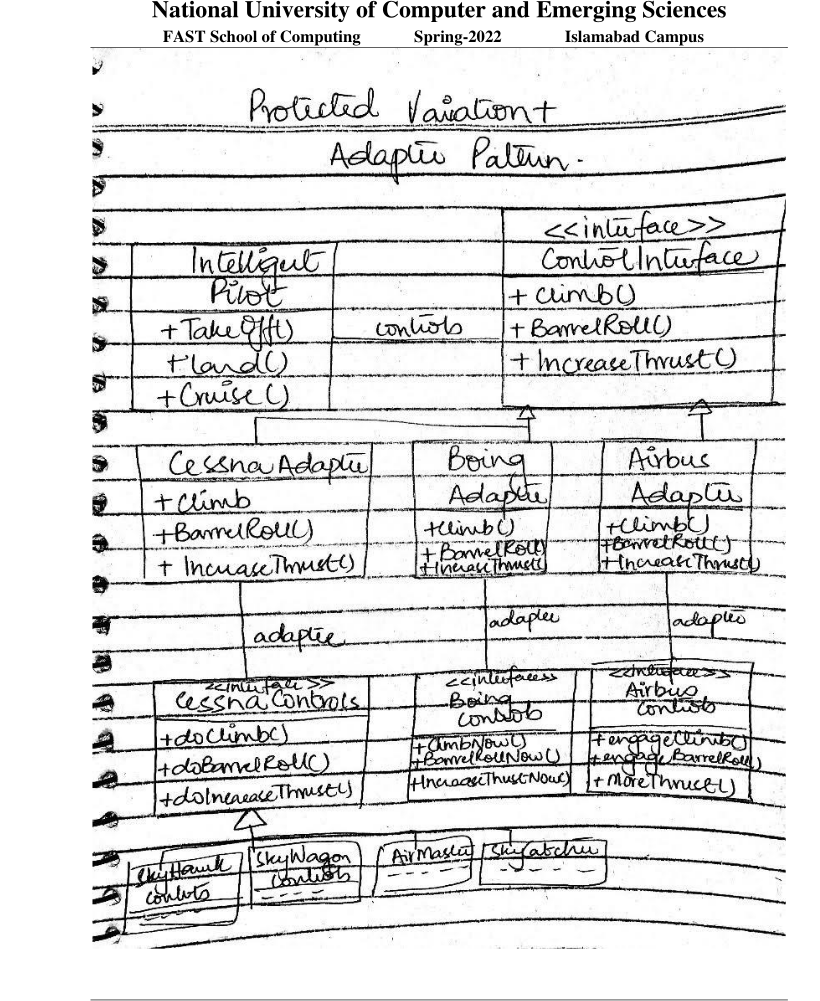 National University of Computer and Emerging Sciences
FAST School of Computing Spring-2022 Islamabad Campus
Protected Variation +
Adapter Pattern.
<<interface>>
Control Interface
+ climb()
+ BarrelRoll()
+ IncreaseThrust()
Intelligent
Pilot
+TakeOff()
+land()
+Cruise()
controls
Cessna Adapter
+climb
+BarrelRoll()
+ IncreaseThrust()
Boing
Adapter
+climb()
+ BarrelRoll()
+IncreaseThrust()
Airbus
Adapter
+climb()
+BarrelRoll()
+IncreaseThrust()
adaptee
adaptee
adapter
<<interface>>
Cessna Controls
+doClimb()
+doBarrelRoll()
+doIncreaseThrust()
<<interface>>
Boing
Controls
+ClimbNow()
+BarrelRollNow()
+IncreaseThrustNow()
<<interface>>
Airbus
Controls
+engageClimb()
+engageBarrelRoll()
+MoreThrust()
SkyHawk
Controls
SkyWagon
Controls
AirMaster
SkyCatcher